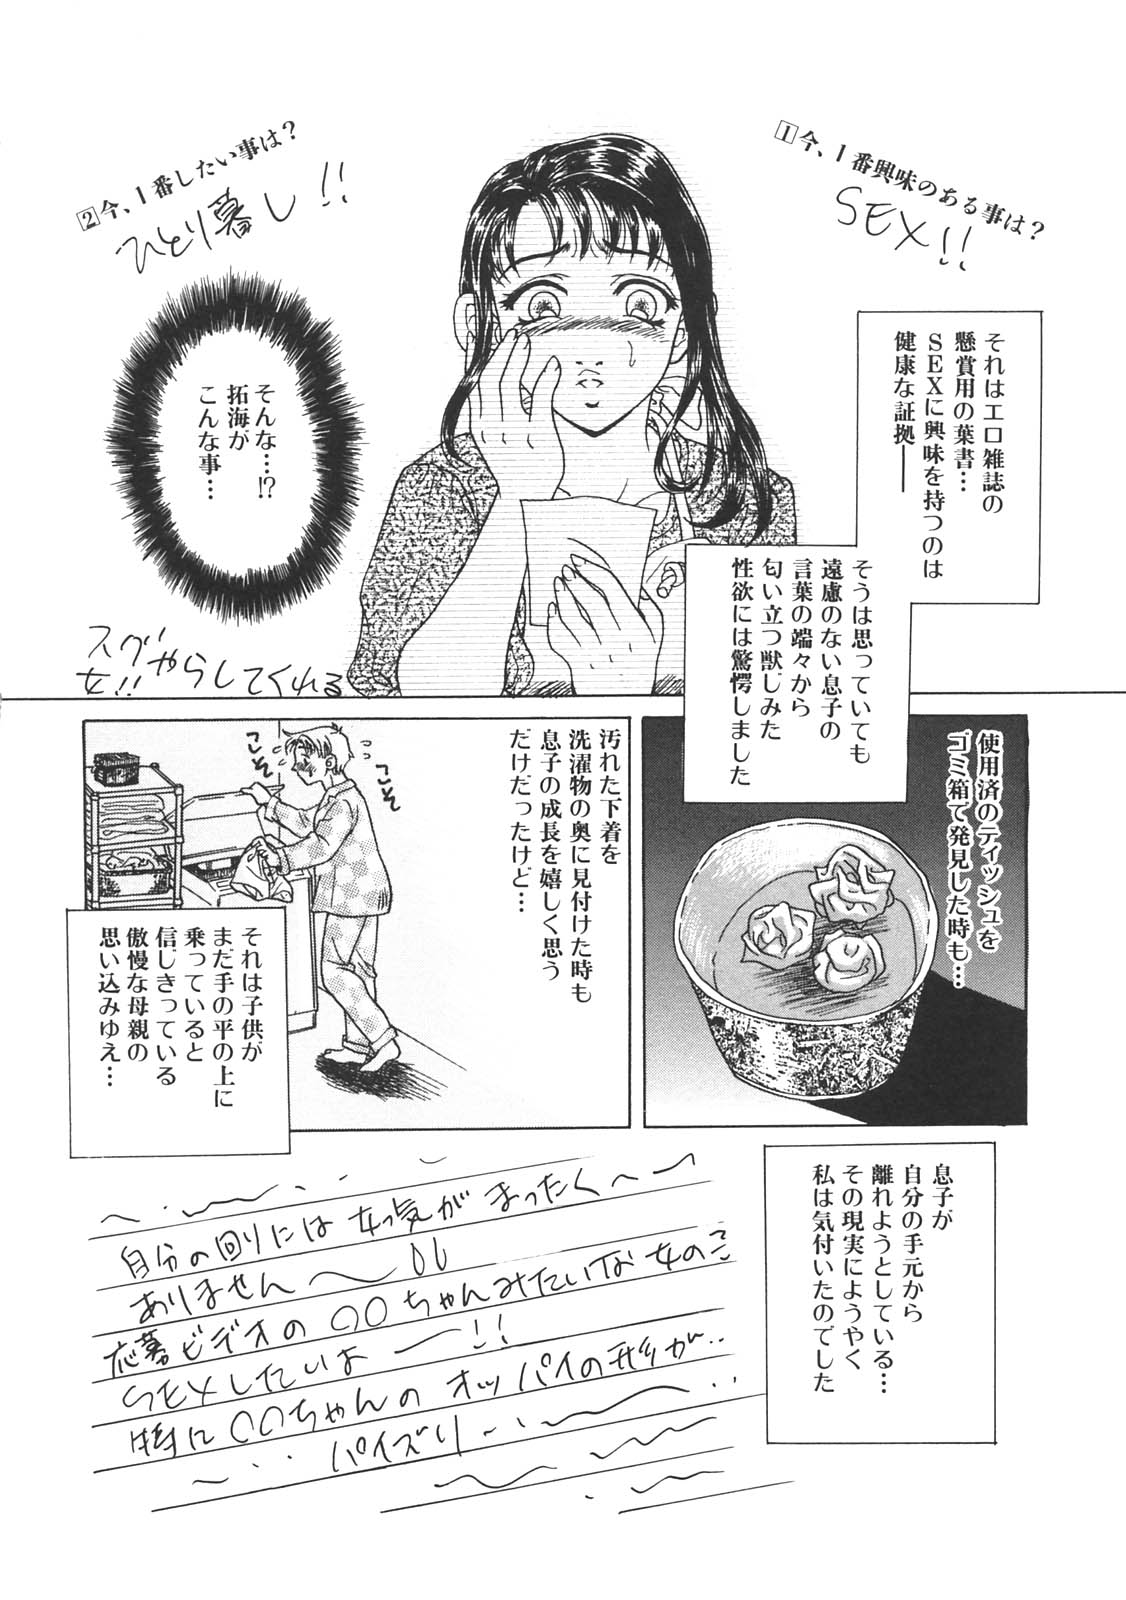 1今、1番興味のある事は?
SEX!!
2今、1番したい事は?
ひとり暮し!!
それはエロ雑誌の
懸賞用の葉書…
SEXに興味を持つのは
健康な証拠——
そんな…!?
拓海が
こんな事…
そうは思っていても
遠慮のない息子の
言葉の端々から
匂い立つ獣じみた
性欲には驚愕しました
スグやらしてくれる
女!!
使用済のティッシュを
ゴミ箱で発見した時も…
汚れた下着を
洗濯物の奥に見付けた時も
息子の成長を嬉しく思う
だけだったけど…
こそ
こそ
それは子供が
まだ手の平の上に
乗っていると
信じきっている
傲慢な母親の
思い込みゆえ…
息子が
自分の手元から
離れようとしている…
その現実にようやく
私は気付いたのでした
自分の回りには女っ気がまったく
ありません
応募ビデオの〇〇ちゃんみたいな女のこ
SEXしたいよー!!
特に〇〇ちゃんのオッパイの形が..
パイズリ